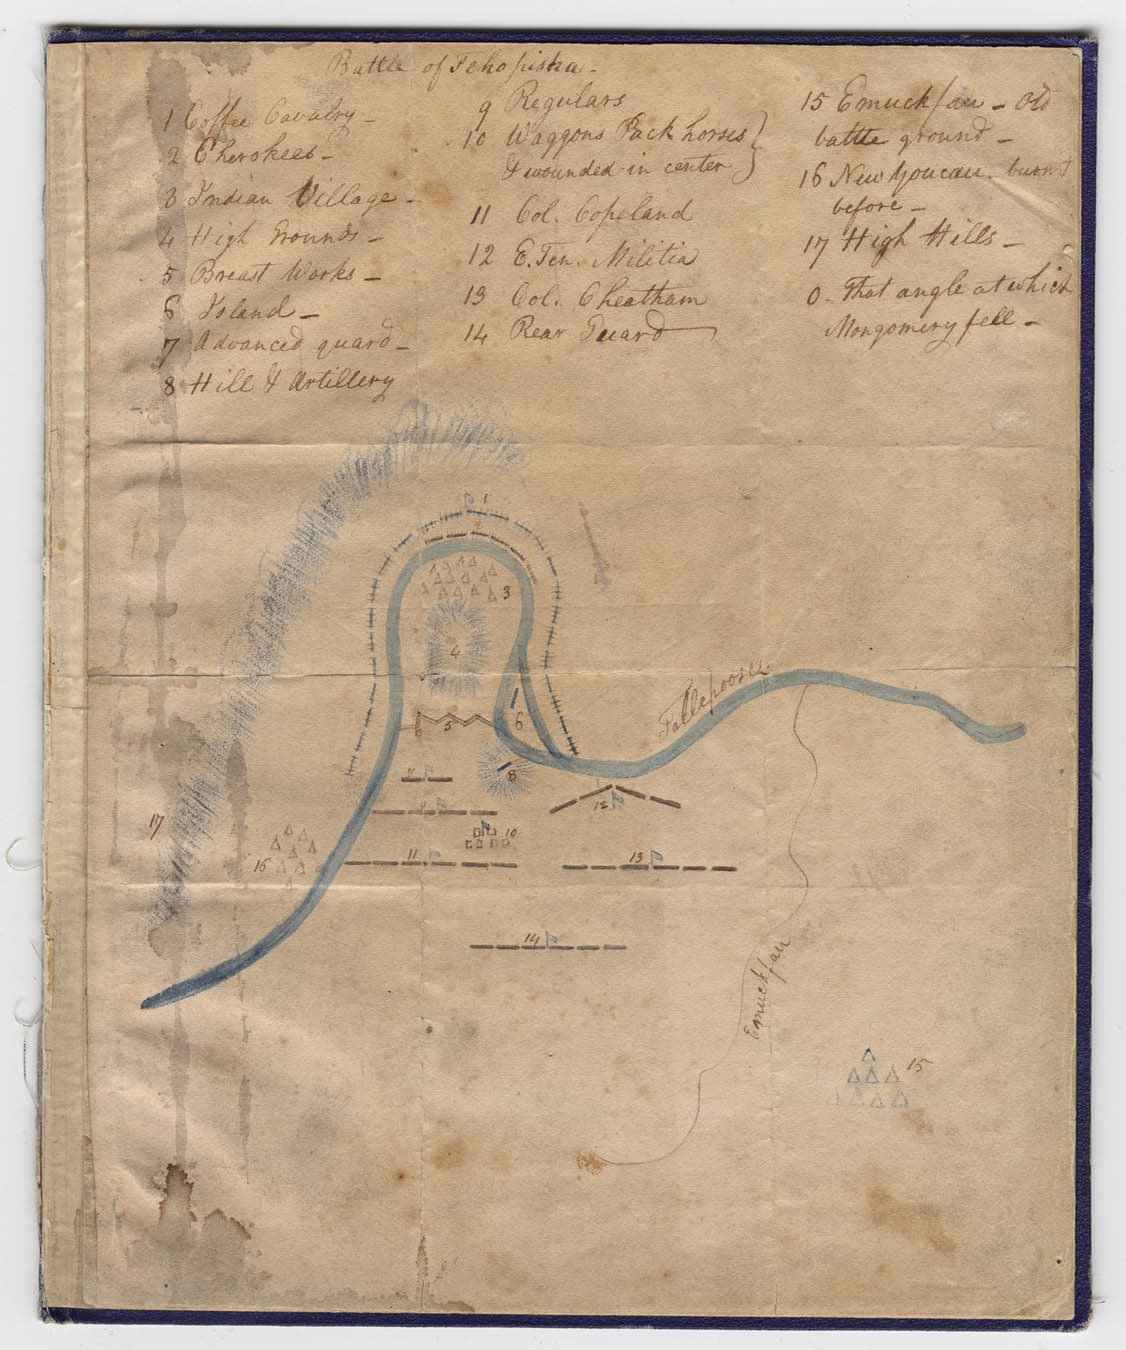 Battle of Tehopiska -
1 Coffee Cavalry -
2 Cherokees -
3 Indian Village -
4 High Grounds -
5 Breast Works -
6 Island -
7 Advanced guard -
8 Hill & Artillery
9 Regulars
10 Waggons Pack horses
& wounded in center
11 Col. Copeland
12 E. Ten. Militia
13 Col. Cheatham
14 Rear Guard
15 Emuckfau - Old
battle ground -
16 New Youcau. burnt
before -
17 High Hills -
0. That angle at which
Mongomery fell -
1
2
3
4
5
6
7
8
9
10
11
12
13
14
15
16
17
Tallepoosee
Emuckfau